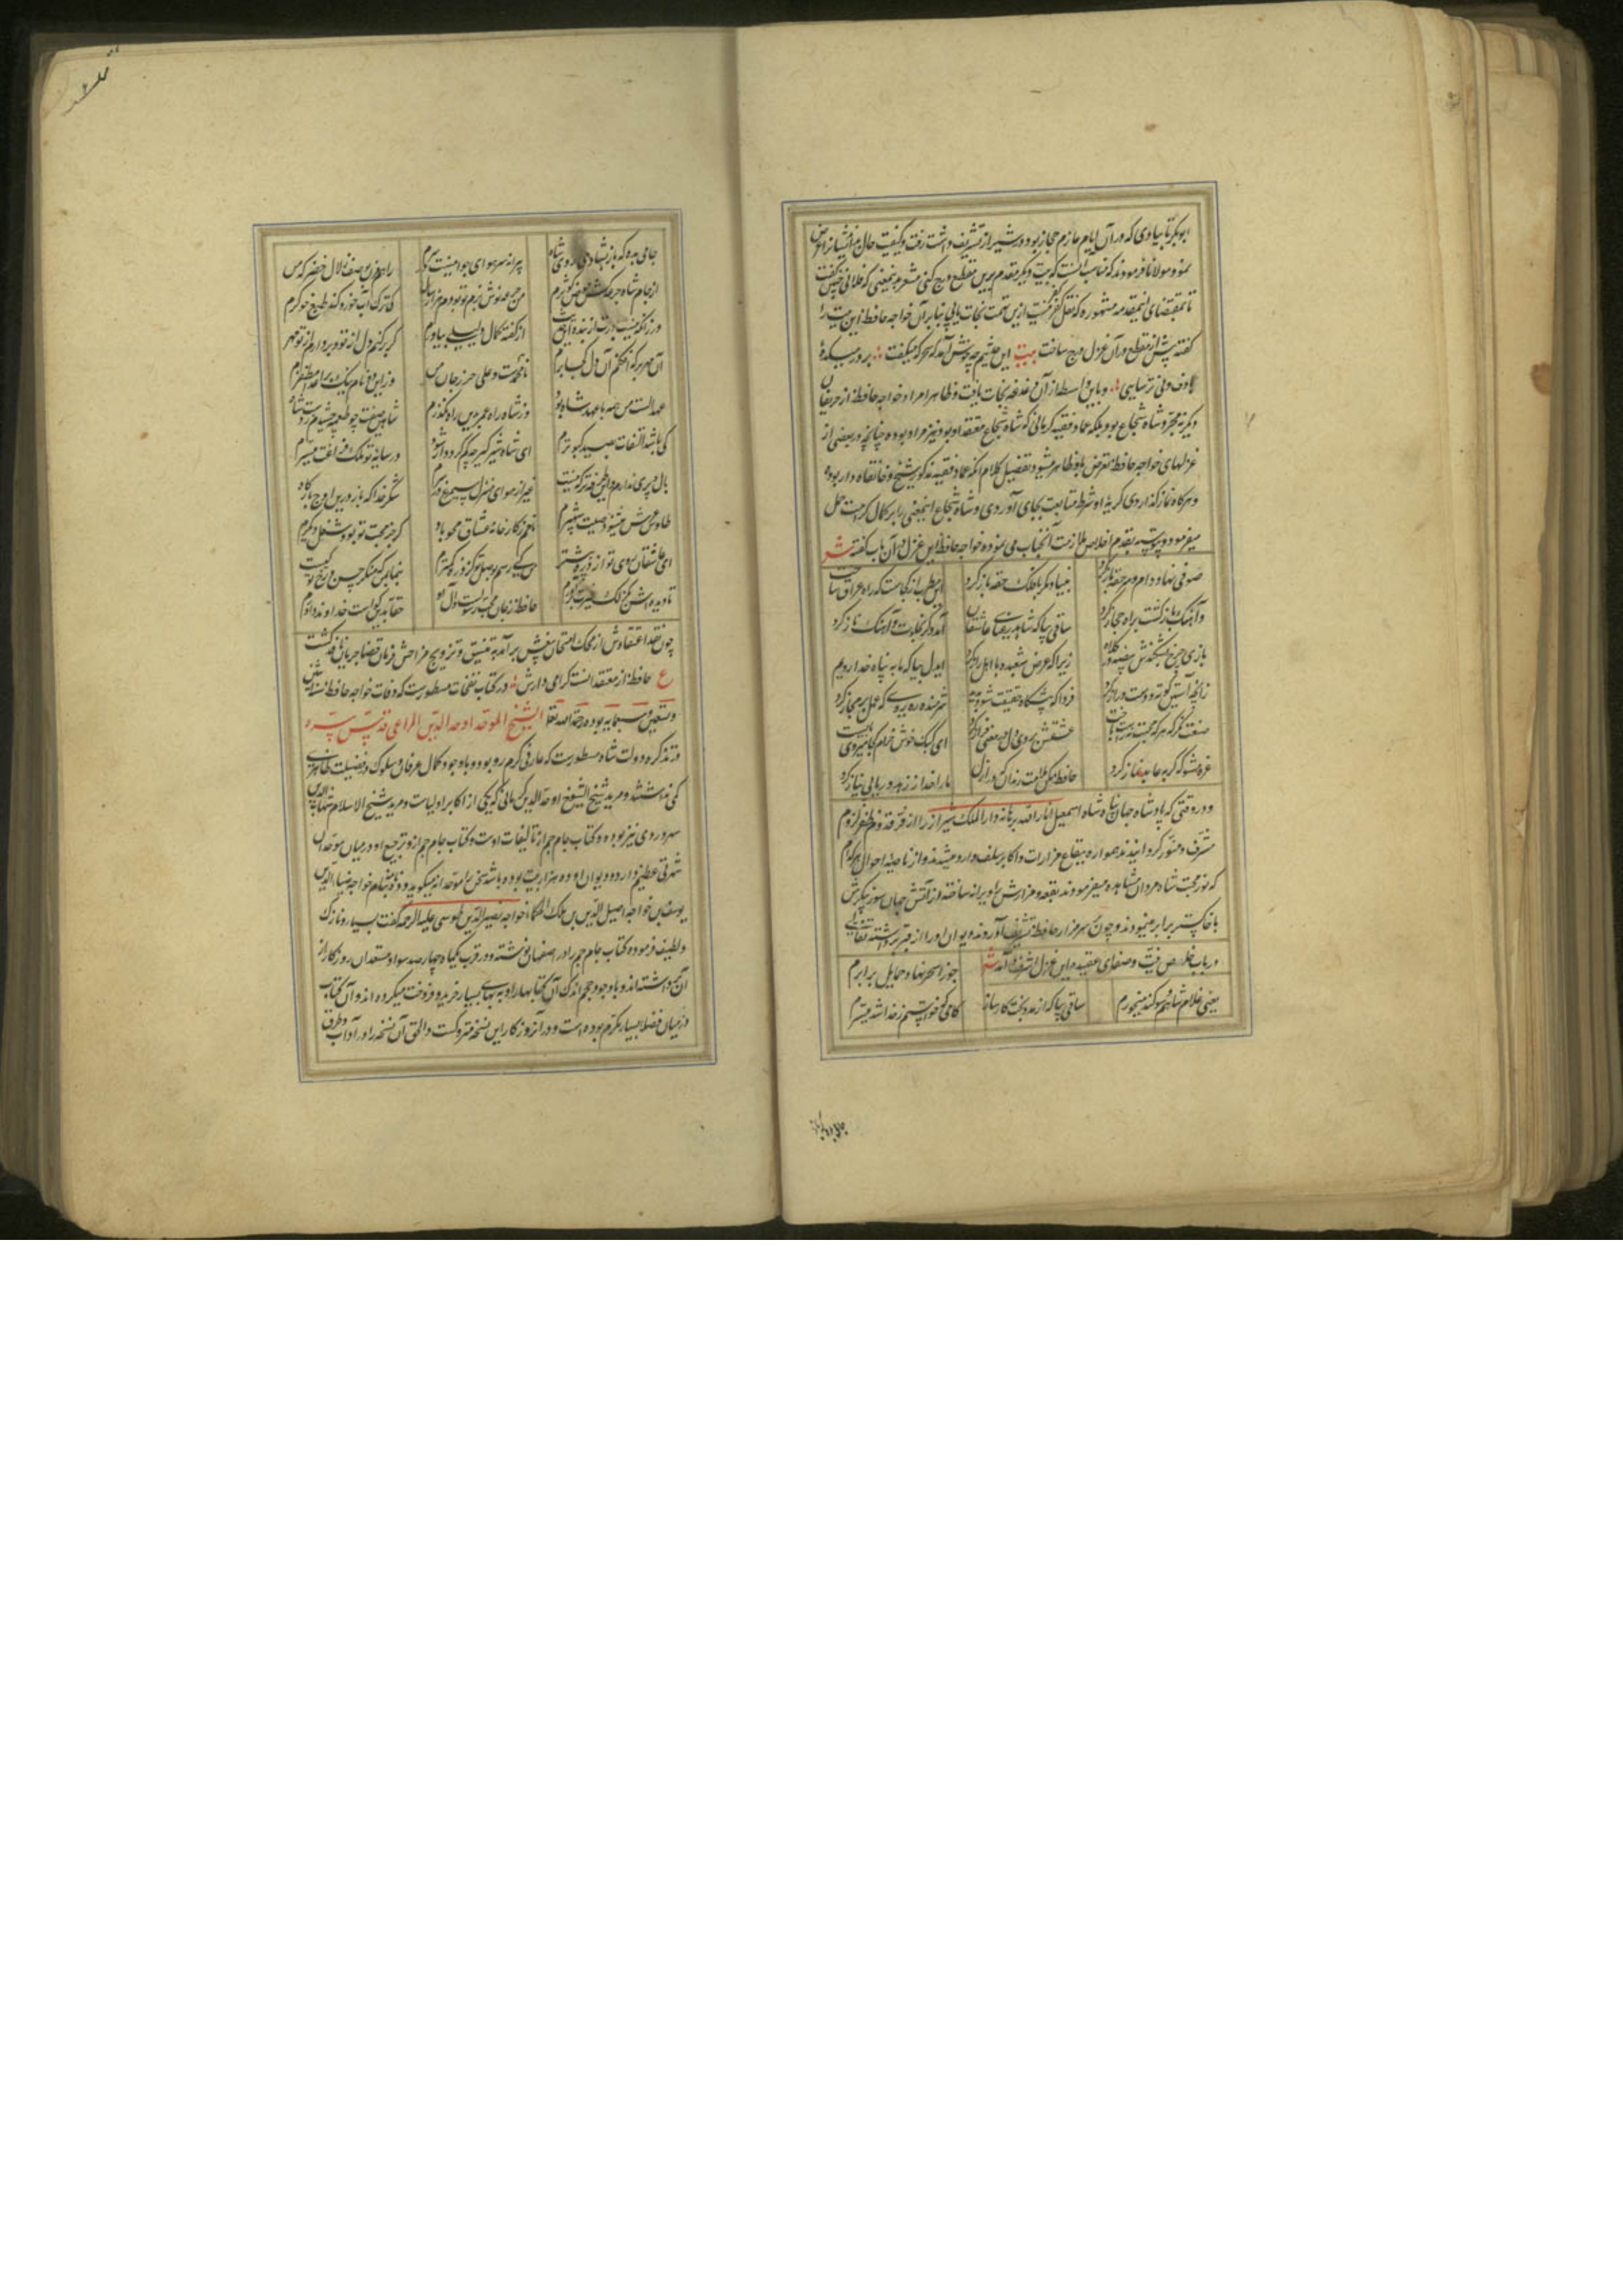 ابوبکر تایبادی که در آن ایام عازم حجاز بود در شیراز تشریف داشت رفت و کیفیت حال را بایشان عرض
نمود مولانا فرمودند که مناسب آنست که بیت دیگر مقدم برین مقطع درج کنی مشعر باینمعنی که فلانی چنین میگفت
تا بمقتضای اینمقدمه مشهوره که نقل کفر کفر نیست ازین تهمت نجات یابی بنابر آن خواجه حافظ این بیت را
گفته پیش از مقطع در آن غزل درج ساخت بیت این حدیثم چه خوش آمد که سحرگه میگفت بر در میکدهٔ
با دف و نی ترسایی و باین واسطه از آن دغدغه نجات یافت و ظاهرا مراد خواجه حافظ از حریفان
دیگر نه مجرد شاه شجاع بود بلکه عماد فقیه کرمانی که شاه شجاع معتقد او بود نیز مراد بوده چنانچه در بعضی از
غزلهای خواجه حافظ تعرض باو ظاهر میشود تفصیل کلام آنکه عماد فقیه مذکور شیخ و خانقاه دار بوده
و هرگاه نماز گذاردی گربهٔ او شرط متابعت بجای آوردی و شاه شجاع اینمعنی را بر کمال کرامت حمل
میفرمود و پیوسته بقدم اخلاص ملازمت آنجناب می نمود خواجه حافظ این غزل در آن باب گفته شعر
صوفی نهاد دام و سر حقه باز کرد بنیاد مکر با فلک حقه باز کرد این مطرب از کجاست که راه عراق ساخت
و آهنگ بازگشت براه حجاز کرد ساقی بیا که شاهد رعنای عاشقان آمد دگر بجلوت و آهنگ ناز کرد
بازی چرخ بشکندش بیضه در کلاه زیرا که عرض شعبده با اهل راز کرد ایدل بیا که ما به پناه خدا رویم
زانچه آستین کوته و دست دراز کرد فردا که پیشگاه حقیقت شود پدید شرمنده ره روی که عمل بر مجاز کرد
صنعت مکن که هر که محبت نه راست باخت عشقش بروی دل در معنی فراز کرد ای کبک خوش خرام کجا میروی بایست
غره مشو که گربه عابد نماز کرد حافظ مکن ملامت رندان که در ازل ما را خدا ز زهد و ریا بی نیاز کرد
و در وقتی که پادشاه جهان پناه شاه اسمعیل انار الله برهانه دار الملک شیراز را از فر قدوم ظفر لزوم
مشرف و منور گردانیدند همواره ببقاع مزارات و اکابر سلف وارد میشدند و از ناصیهٔ احوال هر کدام
که نور محبت شاه مردان مشاهده میفرمودند بقعه و مزارش را ویرانه ساخته و از آتش جهان سوز پیکرش
با خاکستر برابر مینمودند و چون بر سر مزار حافظ تشریف آوردند دیوان او را از قبر برداشته تفالی
در باب خلوص نیت و صفای عقیده این غزل اشرف برآمد شعر جوزا سحر نهاد حمایل برابرم
یعنی غلام شاهم و سوگند میخورم ساقی بیا که از مدد بخت کارساز کامی که خواستم ز خدا شد میسرم
جامی بده که باز بشادی روی شاه پیرانه سر هوای جوانیست در سرم راهم مزن بوصف زلال خضر که من
از جام شاه جرعه کش حوض کوثرم من جرعه نوش بزم تو بودم هزار سال کی ترک آبخورد کند طبع خو گرم
ور زانکه نیست باورت از بنده این حدیث از گفته کمال دلیلی بیاورم گر برکنم دل از تو و بردارم از تو مهر
آن مهر بر که افکنم آن دل کجا برم نام محمدست و علی حرز جان من
عهد الست من همه با عهد شاه بود وز شاهراه عمر بدین راه بگذرم شاهین صفت چو طعمه چشیدم ز دست شاه
کی باشد التفات بصید کبوترم ای شاه شیرگیر چه کم گردد ار شود در سایهٔ تو ملک فراغت میسرم
بال و پری ندارم و این طرفه تر که نیست غیر از هوای منزل سیمرغ در سرم شکر خدا که باز درین اوج بارگاه
طاوس عرش میشنود صیت شهپرم نامم ز کارخانه عشاق محو باد گر جز محبت تو بود شغل دیگرم
ای عاشقان روی تو از ذره بیشتر من کی رسم بوصل تو کز ذره کمترم بنما بمن که منکر حسن رخ تو کیست
تا دیده اش بگزلک غیرت برآورم حافظ ز جان محب رسولست و آل او حقا بدین گواست خداوند داورم
چون نقد اعتقادش از محک امتحان بیغش برآمد به تنسیق و ترویج مزاحش فرمان قضا جریان نافذ گشت
ع حافظ از معتقدانست گرامی دارش در کتاب نفحات مسطورست که وفات خواجه حافظ سنه اثنین
و تسعین و سبعمایه بوده رحمة الله تعالی الشیخ الموحد اوحد الدین المراغی قدس سره
در تذکره دولت شاه مسطورست که عارفی گرم رو بود و باوجود کمال عرفان و سلوک در فضیلت ظاهری
کمی نداشتند و مرید شیخ الشیوخ اوحد الدین کرمانی که یکی از اکابر اولیاست و مرید شیخ الاسلام شهاب الدین
سهروردی نیز بوده و کتاب جام جم از تالیفات اوست و کتاب جام جم از و ترجیع او در میان موحدان
شهرتی عظیم دارد و دیوان او ده هزار بیت بوده باشد سخن را موحدانه میگوید و ده نامه بنام خواجه ضیاء الدین
یوسف بن خواجه اصیل الدین بن ملک الحکما خواجه نصیر الدین طوسی علیه الرحمه گفت بسیار نازک
و لطیف فرموده کتاب جام جم را در اصفهان نوشته و در قرب یکماه چهار صد سواد مستعدان روزگار از
آن برداشته اند و باوجود حجم اندک آن کتابها را به بهای بسیار خرید و فروخت میکرده اند و آن کتاب
در میان فضلا بسیار مکرم بوده است و در آن روزگار این نسخه متروکست و الحق آن نسخه را در آداب و طریق